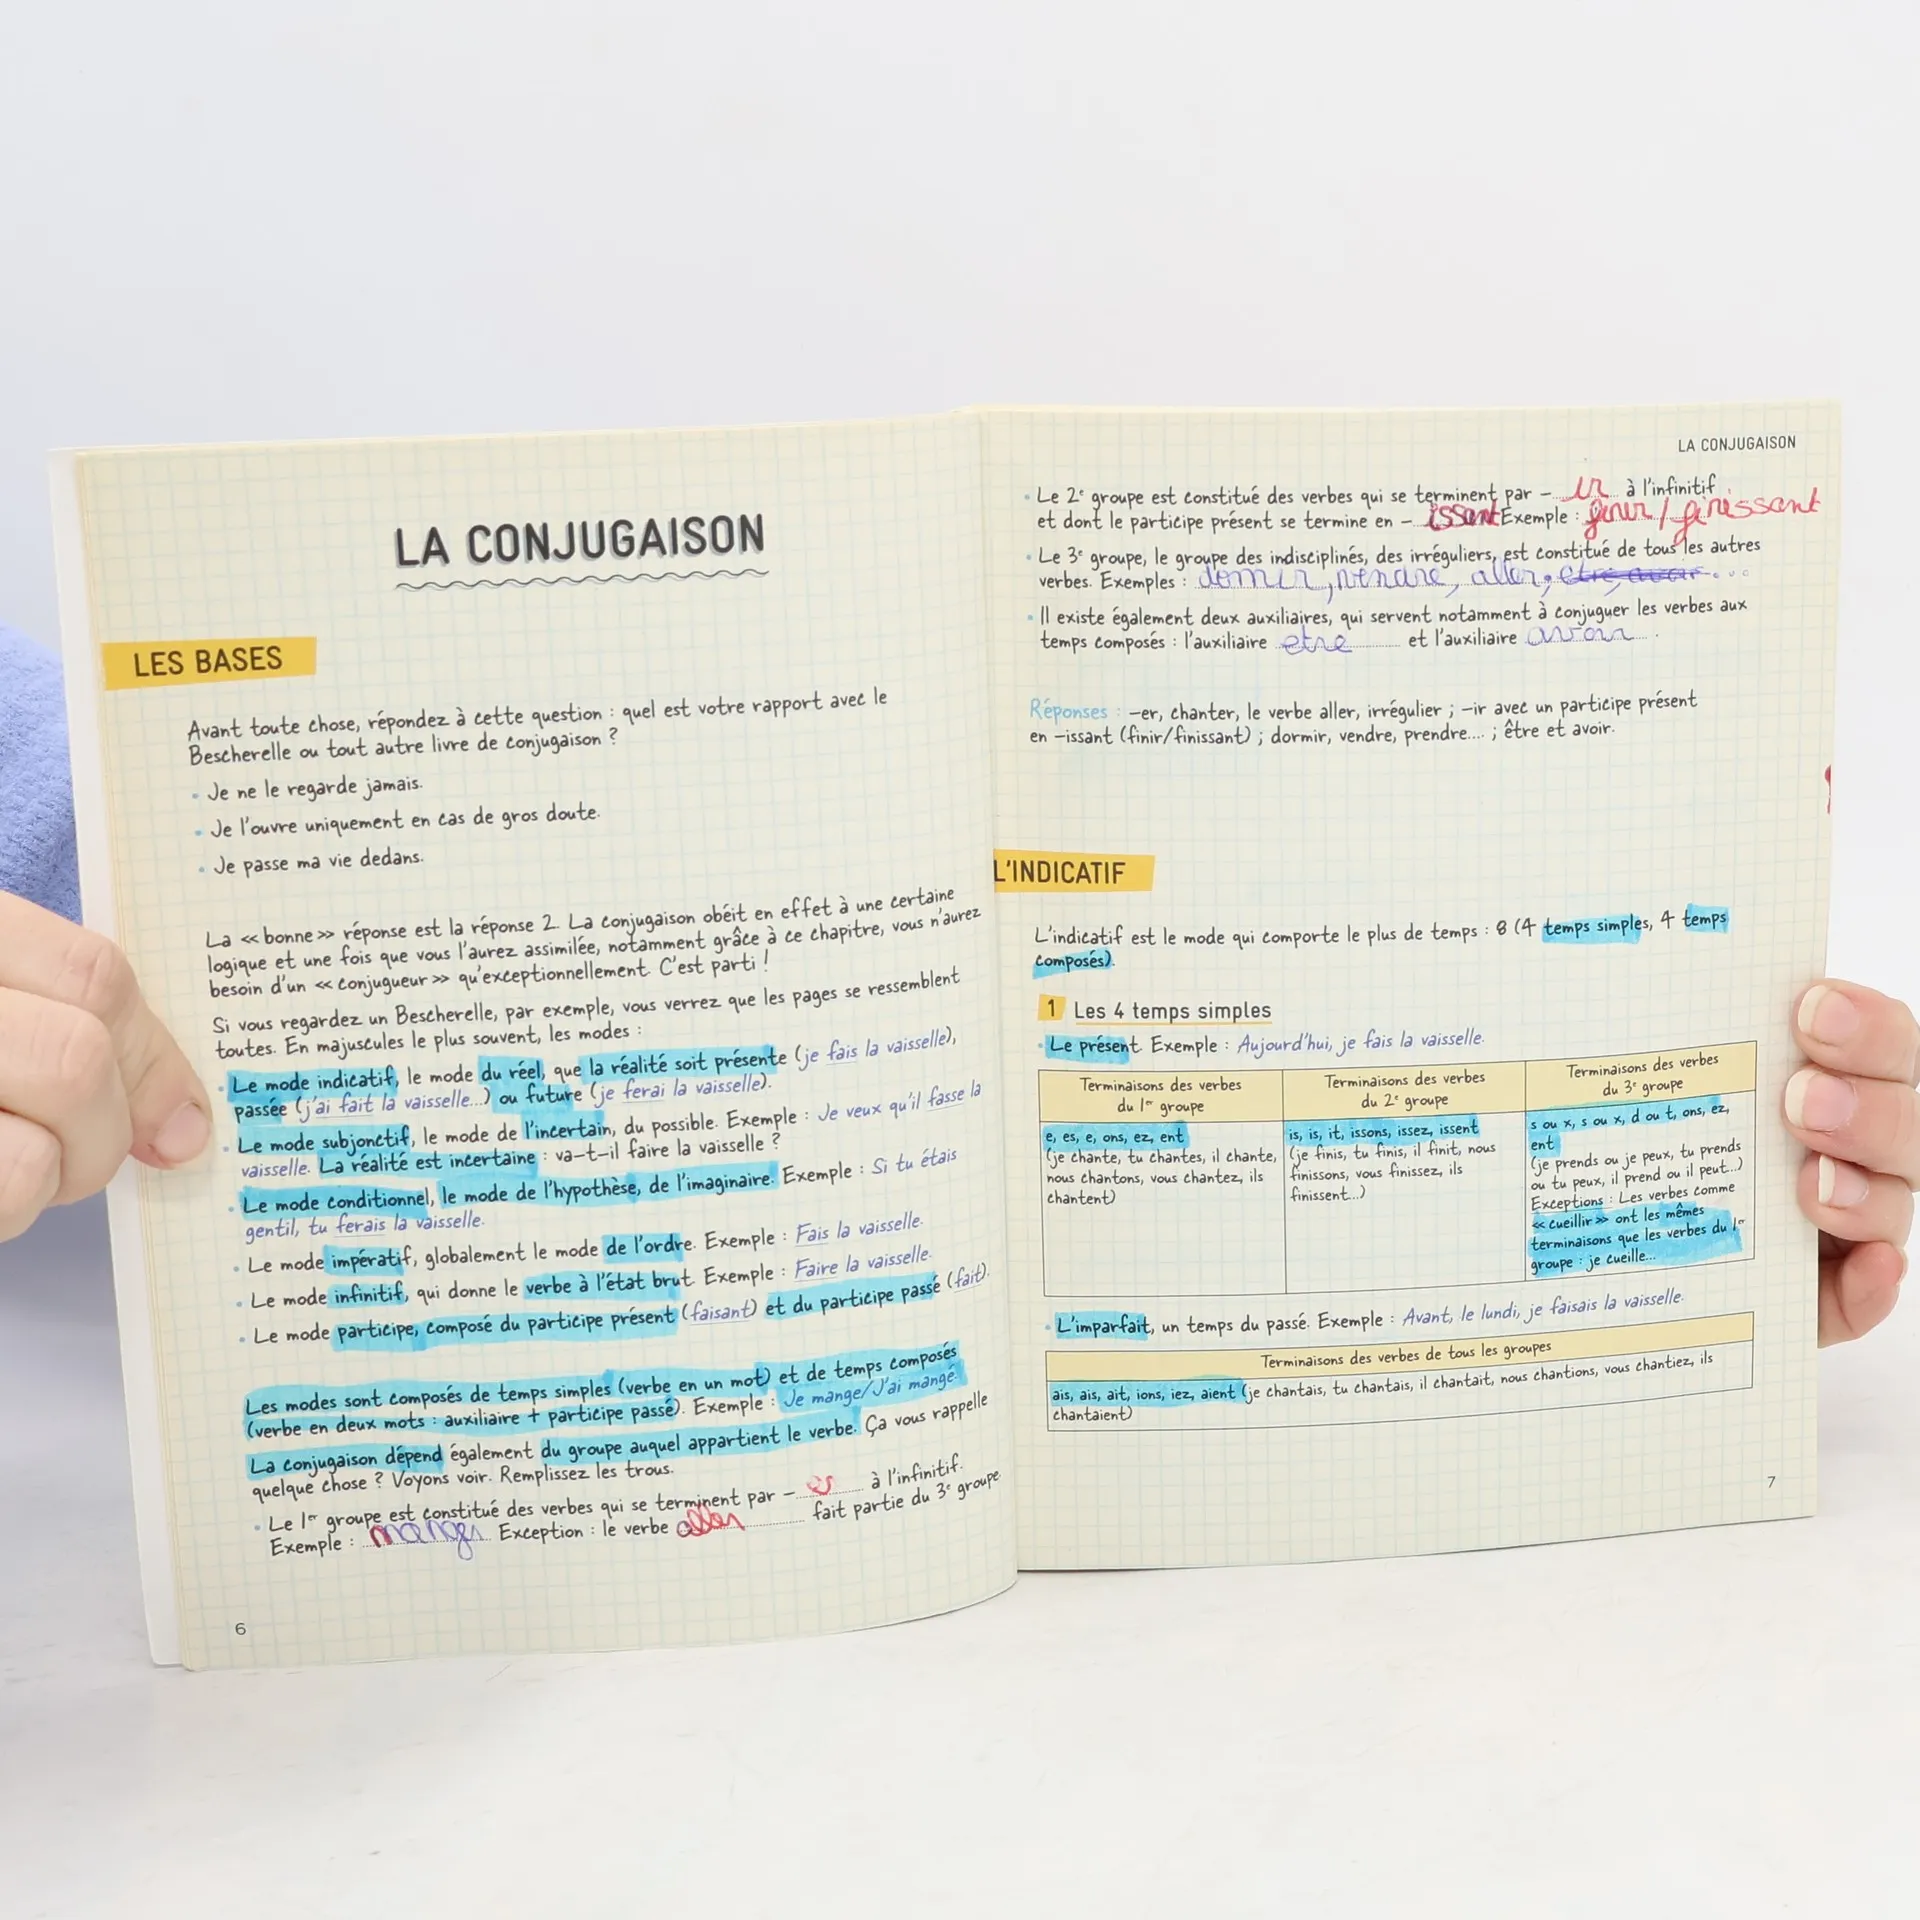 LA CONJUGAISON
LES BASES
Avant toute chose, répondez à cette question : quel est votre rapport avec le
Bescherelle ou tout autre livre de conjugaison ?
• Je ne le regarde jamais.
• Je l'ouvre uniquement en cas de gros doute.
• Je passe ma vie dedans.
La « bonne » réponse est la réponse 2. La conjugaison obéit en effet à une certaine
logique et une fois que vous l'aurez assimilée, notamment grâce à ce chapitre, vous n'aurez
besoin d'un « conjugueur » qu'exceptionnellement. C'est parti !
Si vous regardez un Bescherelle, par exemple, vous verrez que les pages se ressemblent
toutes. En majuscules le plus souvent, les modes :
• Le mode indicatif, le mode du réel, que la réalité soit présente (je fais la vaisselle),
passée (j'ai fait la vaisselle...) ou future (je ferai la vaisselle).
• Le mode subjonctif, le mode de l'incertain, du possible. Exemple : Je veux qu'il fasse la
vaisselle. La réalité est incertaine : va-t-il faire la vaisselle ?
• Le mode conditionnel, le mode de l'hypothèse, de l'imaginaire. Exemple : Si tu étais
gentil, tu ferais la vaisselle.
• Le mode impératif, globalement le mode de l'ordre. Exemple : Fais la vaisselle.
• Le mode infinitif, qui donne le verbe à l'état brut. Exemple : Faire la vaisselle.
• Le mode participe, composé du participe présent (faisant) et du participe passé (fait).
Les modes sont composés de temps simples (verbe en un mot) et de temps composés
(verbe en deux mots : auxiliaire + participe passé). Exemple : Je mange/J'ai mangé.
La conjugaison dépend également du groupe auquel appartient le verbe. Ça vous rappelle
quelque chose ? Voyons voir. Remplissez les trous.
• Le 1er groupe est constitué des verbes qui se terminent par – er à l'infinitif.
Exemple : manger Exception : le verbe aller fait partie du 3e groupe.
6
LA CONJUGAISON
• Le 2e groupe est constitué des verbes qui se terminent par – ir à l'infinitif
et dont le participe présent se termine en – issant Exemple : finir / finissant
• Le 3e groupe, le groupe des indisciplinés, des irréguliers, est constitué de tous les autres
verbes. Exemples : dormir, vendre, aller, etre, avoir...
• Il existe également deux auxiliaires, qui servent notamment à conjuguer les verbes aux
temps composés : l'auxiliaire etre et l'auxiliaire avoir.
Réponses : –er, chanter, le verbe aller, irrégulier ; –ir avec un participe présent
en –issant (finir/finissant) ; dormir, vendre, prendre.... ; être et avoir.
L'INDICATIF
L'indicatif est le mode qui comporte le plus de temps : 8 (4 temps simples, 4 temps
composés).
1 Les 4 temps simples
• Le présent. Exemple : Aujourd'hui, je fais la vaisselle.
Terminaisons des verbes
du 1er groupe
e, es, e, ons, ez, ent
(je chante, tu chantes, il chante,
nous chantons, vous chantez, ils
chantent)
Terminaisons des verbes
du 2e groupe
is, is, it, issons, issez, issent
(je finis, tu finis, il finit, nous
finissons, vous finissez, ils
finissent...)
Terminaisons des verbes
du 3e groupe
s ou x, s ou x, d ou t, ons, ez,
ent
(je prends ou je peux, tu prends
ou tu peux, il prend ou il peut...)
Exceptions : Les verbes comme
« cueillir » ont les mêmes
terminaisons que les verbes du 1er
groupe : je cueille...
• L'imparfait, un temps du passé. Exemple : Avant, le lundi, je faisais la vaisselle.
Terminaisons des verbes de tous les groupes
ais, ais, ait, ions, iez, aient (je chantais, tu chantais, il chantait, nous chantions, vous chantiez, ils
chantaient)
7